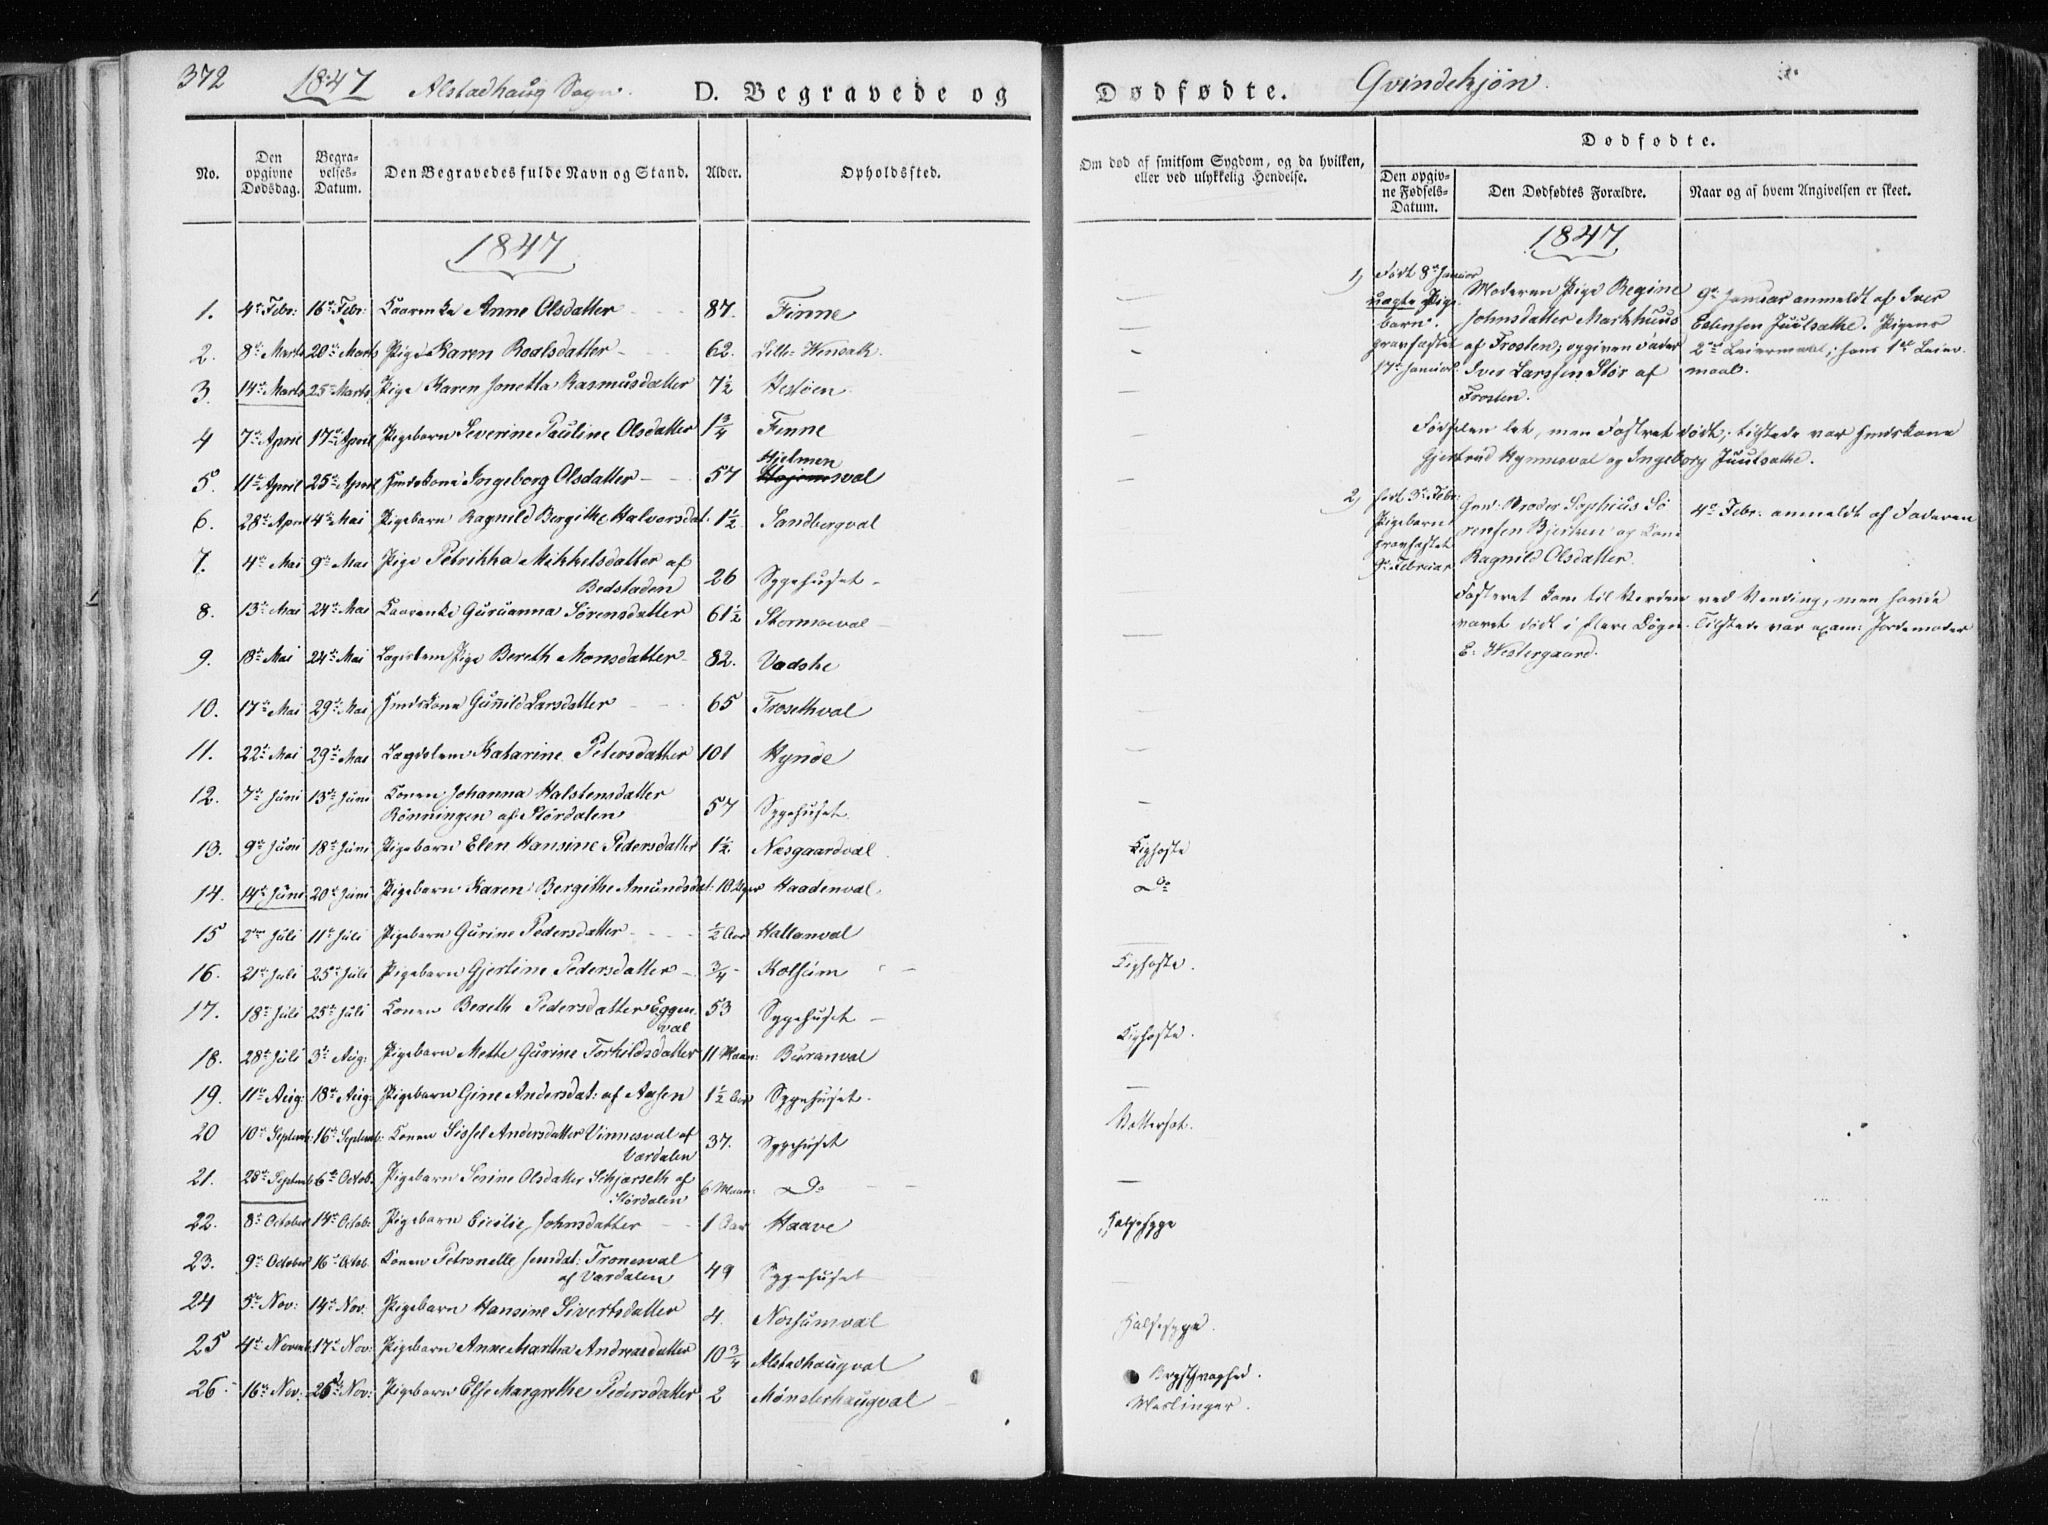 372 1847 Alstadhaug Sogn. D. Begravede og Dødfødte. Qvindekjøn.
No. Den opgivne Dødsdag. Begravelses-Datum. Den Begravedes fulde Navn og Stand. Alder. Opholdssted.
Om død af smitsom Sygdom, og da hvilken, eller ved ulykkelig Hendelse.
Dødfødte.
Den opgivne Fødsels-Datum. Den Dødfødtes Forældre. Naar og af hvem Angivelsen er skeet.
1847
1. 4de Febr: 16de Febr: Kaarenke Anne Olsdatter 87. Finne
2. 8de Marts 20de Marts Pige Karen Roalsdatter 62.
3. 14de Marts 25de Marts Pige Karen Jonetta Rasmusdatter 7½ Hestøen
4 7de April 17de April Pigebarn Severine Pauline Olsdatter 1¾ Finne
5. 11te April 25de April Huuskone Ingeborg Olsdatter 57 Hjelmen
val
6. 28de April 4de Mai Pigebarn Ragnild Bergithe Halvorsdat: 1½ Sandbergval
7. 4de Mai 9de Mai Pige Petrikka Mikkelsdatter af
Bedstaden 26 Sygehuset
8. 13de Mai 24de Mai Kaarenke Guruanna Sørensdatter 61½ Stormoeval
9. 18de Mai 24de Mai Lægslem Pige Bereth Monsdatter 82. Vadske
10. 17de Mai 29de Mai Huuskone Gunnild Larsdatter 65 Trosethval
11. 22de Mai 29de Mai Lægdslem Katarine Petersdatter 101 Hynde
12. 7de Juni 13de Juni Konen Johanna Halstensdatter
Rønningen af Størdalen 57 Sygehuset
13. 9de Juni 18de Juni Pigebarn Elen Hansine Pedersdatter 1½ Næsgaardval Kighoste
14. 14de Juni 20de Juni Pigebarn Karen Bergithe Amundsdat: 10 Uger Haadenval Do
15 2den Juli 11te Juli Pigebarn Gurine Pedersdatter ½ Aar Hallanval
16. 21de Juli 25de Juli Pigebarn Gjertine Pedersdatter ¾ Kolsum Kighoste.
17. 18de Juli 25de Juli Konen Bereth Pedersdatter Eggen
val 53 Sygehuset
18. 28de Juli 3de Aug: Pigebarn Mette Gurine Torkildsdatter 11 Maan: Buranval Kighoste.
19. 11te Aug: 18de Aug: Pigebarn Gine Andersdat: af Aasen 1½ Aar Sygehuset.
20 10de Septemb: 16de Septemb: Konen Sissel Andersdatter Vinnesval af
Værdalen 37. Sygehuset
21. 28de Septemb 6te Octob. Pigebarn Serine Olsdatter Skjærseth af
Størdalen 6 Maan: Do
22. 8de October 14de Octob: Pigebarn Cicilie Johnsdatter 1 Aar Haave Halssyge
23. 9de October 16de Octob. Konen Petronelle Jensdat: Tronesval
af Værdalen 49 Sygehuset
24 5te Nov: 14de Nov. Pigebarn Hansine Sivertsdatter 4. Norsumval Halssyge.
25 4de Novemb: 17de Nov: Pigebarn Anne Martha Andreasdatter 10¾ Alstadhaugval Brystsvaghed.
26. 16de Nov. 25de Nov: Pigebarn Else Margrethe Pedersdatter 2 Mønsterhaugval Meslinger.
1847
1) Født 8de Januar
uægte Pige-
barn.
gravfæstet
17de Januar.
Moderen Pige Regine
Johnsdatter Markhuus
af Frosten; opgiven Fader
Iver Larssen Stør af
Frosten.
9de Januar anmeldt af Iver
Estensen Juulsathe. Pigens
2det Leiermaal; hans 1ste Leier-
maal.
Fødselen let, men Fostret dødt; tilstede var Huuskone
Gjertrud Hynnesval og Ingeborg Juulsathe.
2) født 3de Febr:
Pigebarn
gravfæstet
Februar
Gevb: Broder Sophius Sø-
rensen Bjerken og Kone
Ragnild Olsdatter.
4de Febr: anmeldt af Faderen
Fosteret kom til Verden ved Vending, men havde
været dødt i flere Døgn. Tilstede var exam: Jordemoder
E. Westergaard.